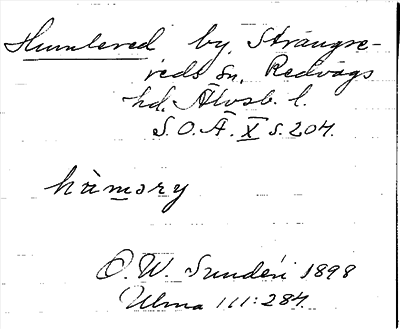 Humlered by, Strängse-
reds sn, Redvägs
hd. Älvsb. l.
S.O.Ä. X s. 204.
hà̀mory
O. W. Sundén 1898
Ulma 111:284.